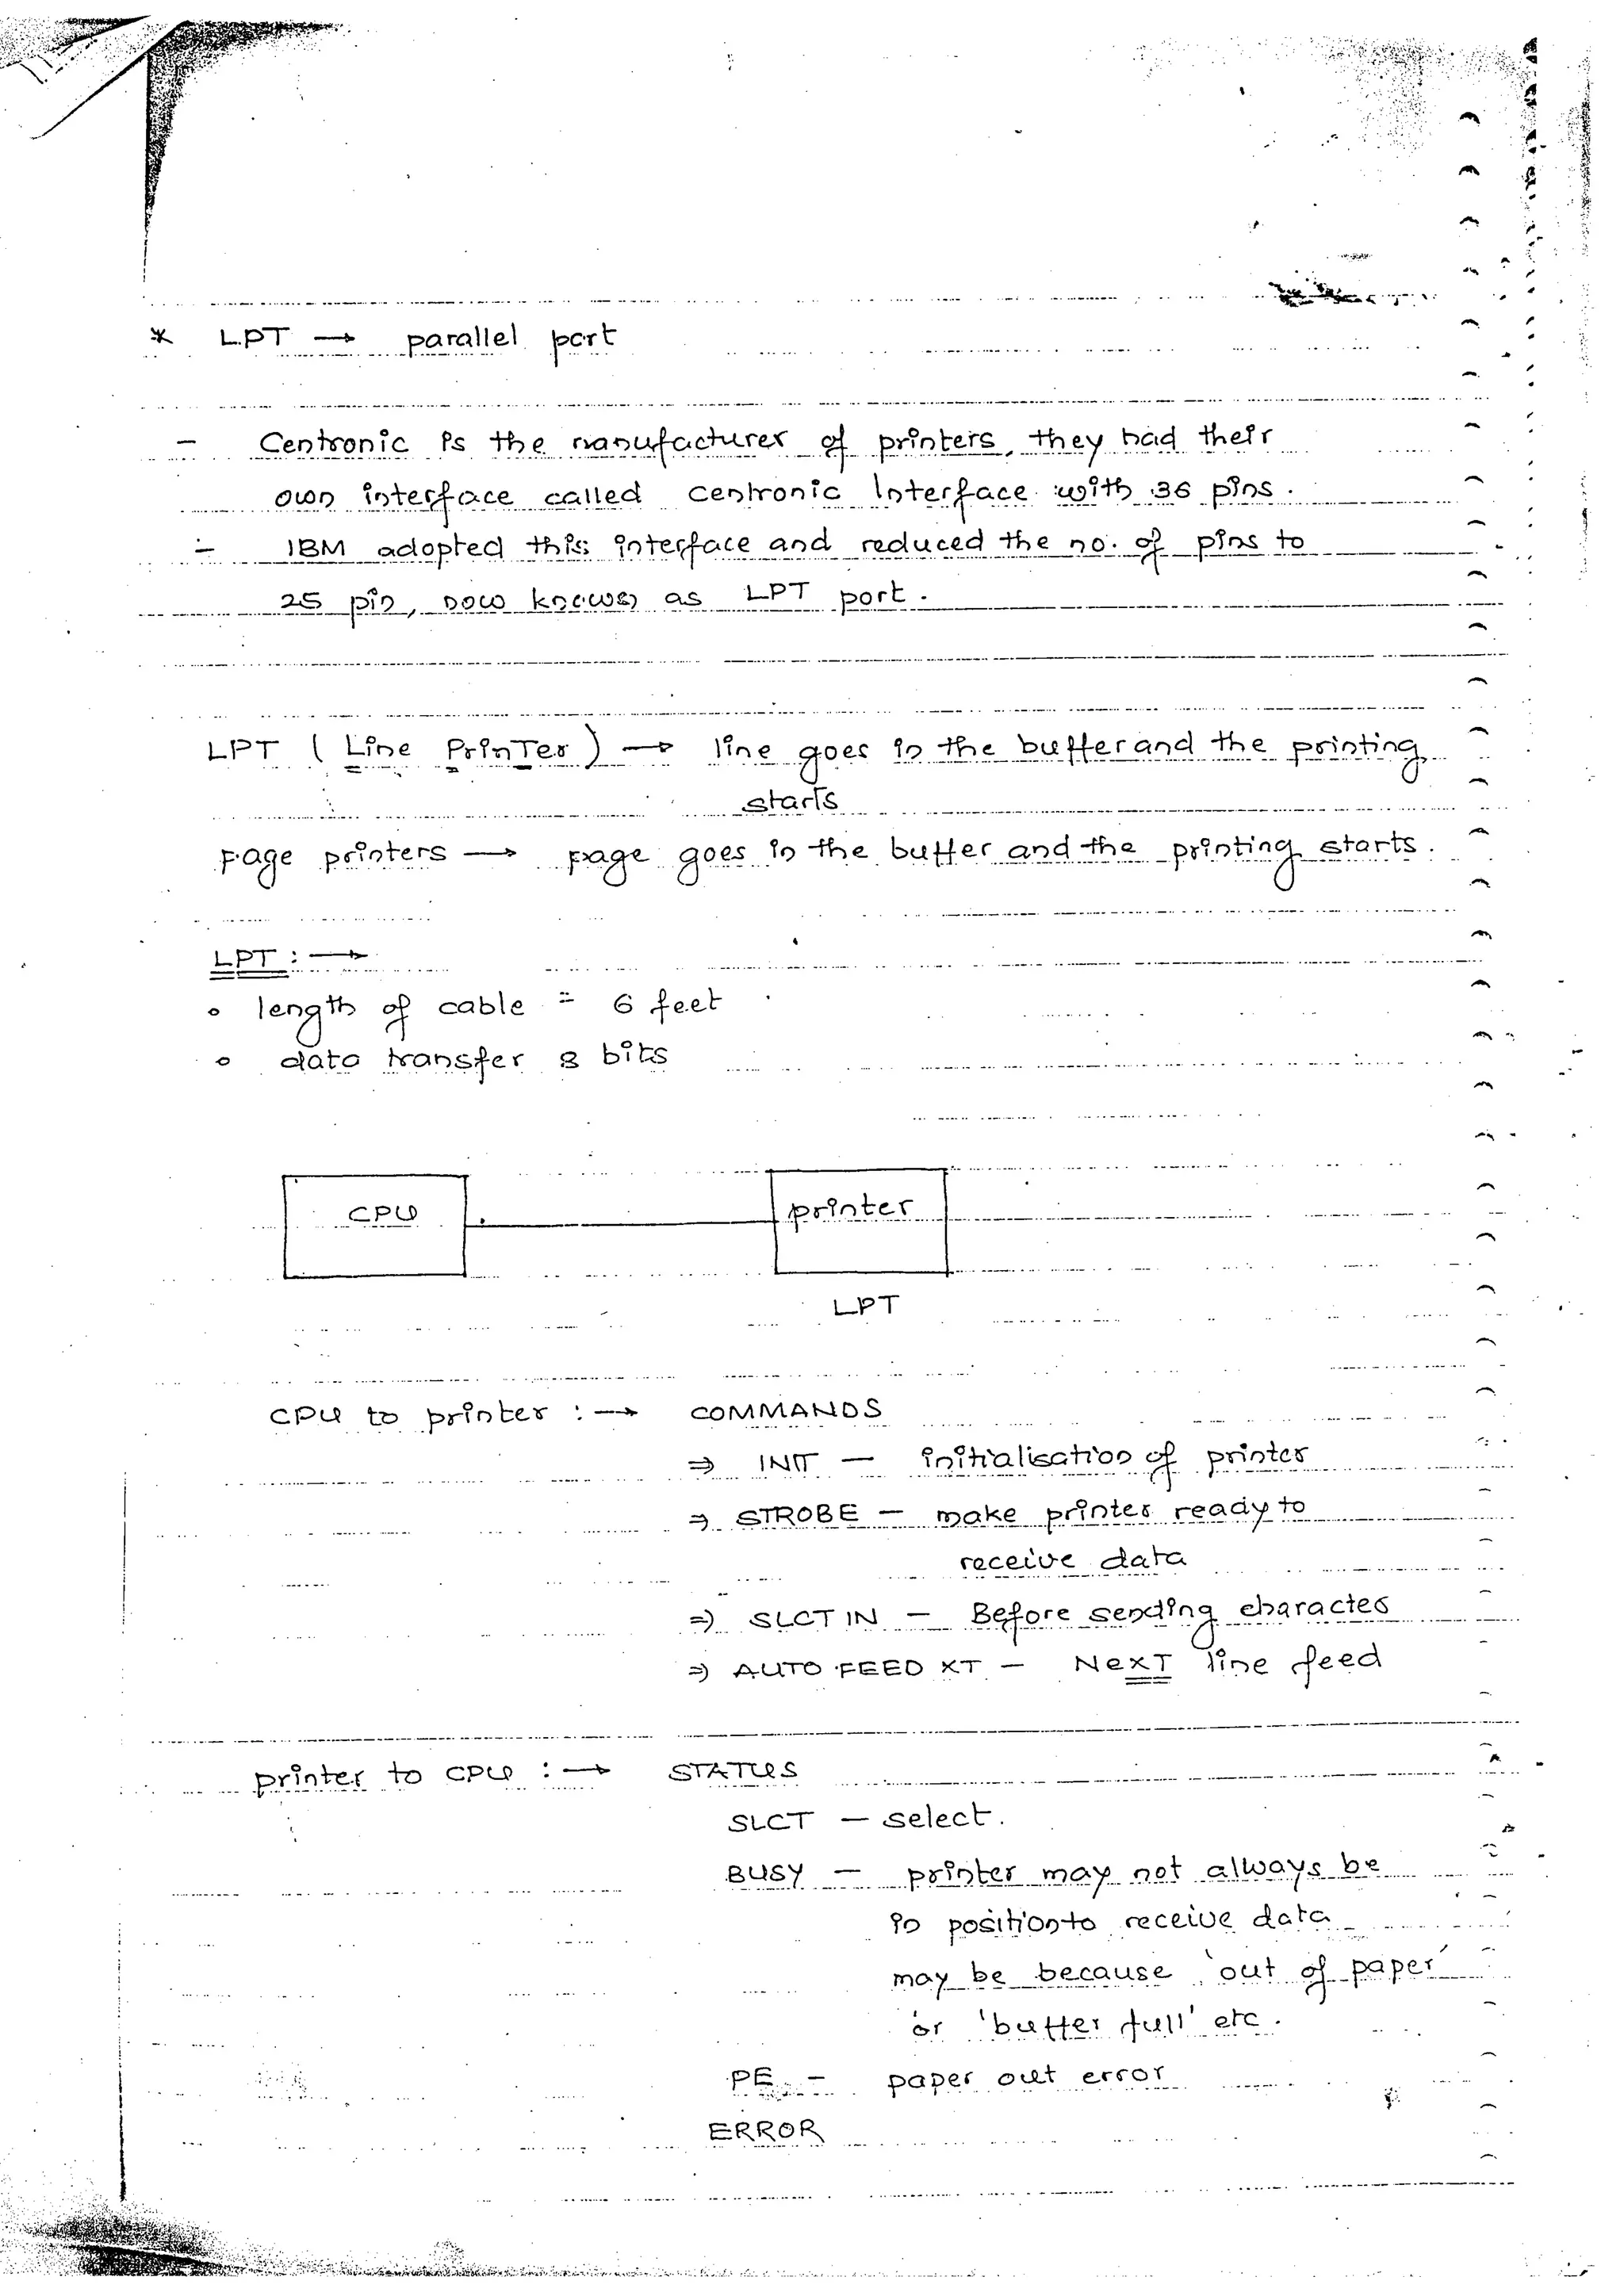 * LPT → parallel port
- Centronic is the manufacturer of printers, they had their
own interface called centronic Interface with 36 pins.
- IBM adopted this interface and reduced the no. of pins to
25 pin, now known as LPT port.
LPT (Line PrinTer) → line goes in the buffer and the printing
starts
page printers → page goes in the buffer and the printing starts.
LPT : →
o length of cable = 6 feet
o data transfer 8 bits
CPU printer
LPT
CPU to printer : → COMMANDS
⇒ INIT - initialisation of printer
⇒ STROBE - make printer ready to
receive data
⇒ SLCT IN - Before sending character
⇒ AUTO FEED XT - NeXT line feed
printer to CPU : → STATUS
SLCT - select.
BUSY - printer may not always be
in position to receive data
may be because 'out of paper'
or 'buffer full' etc.
PE - paper out error
ERROR